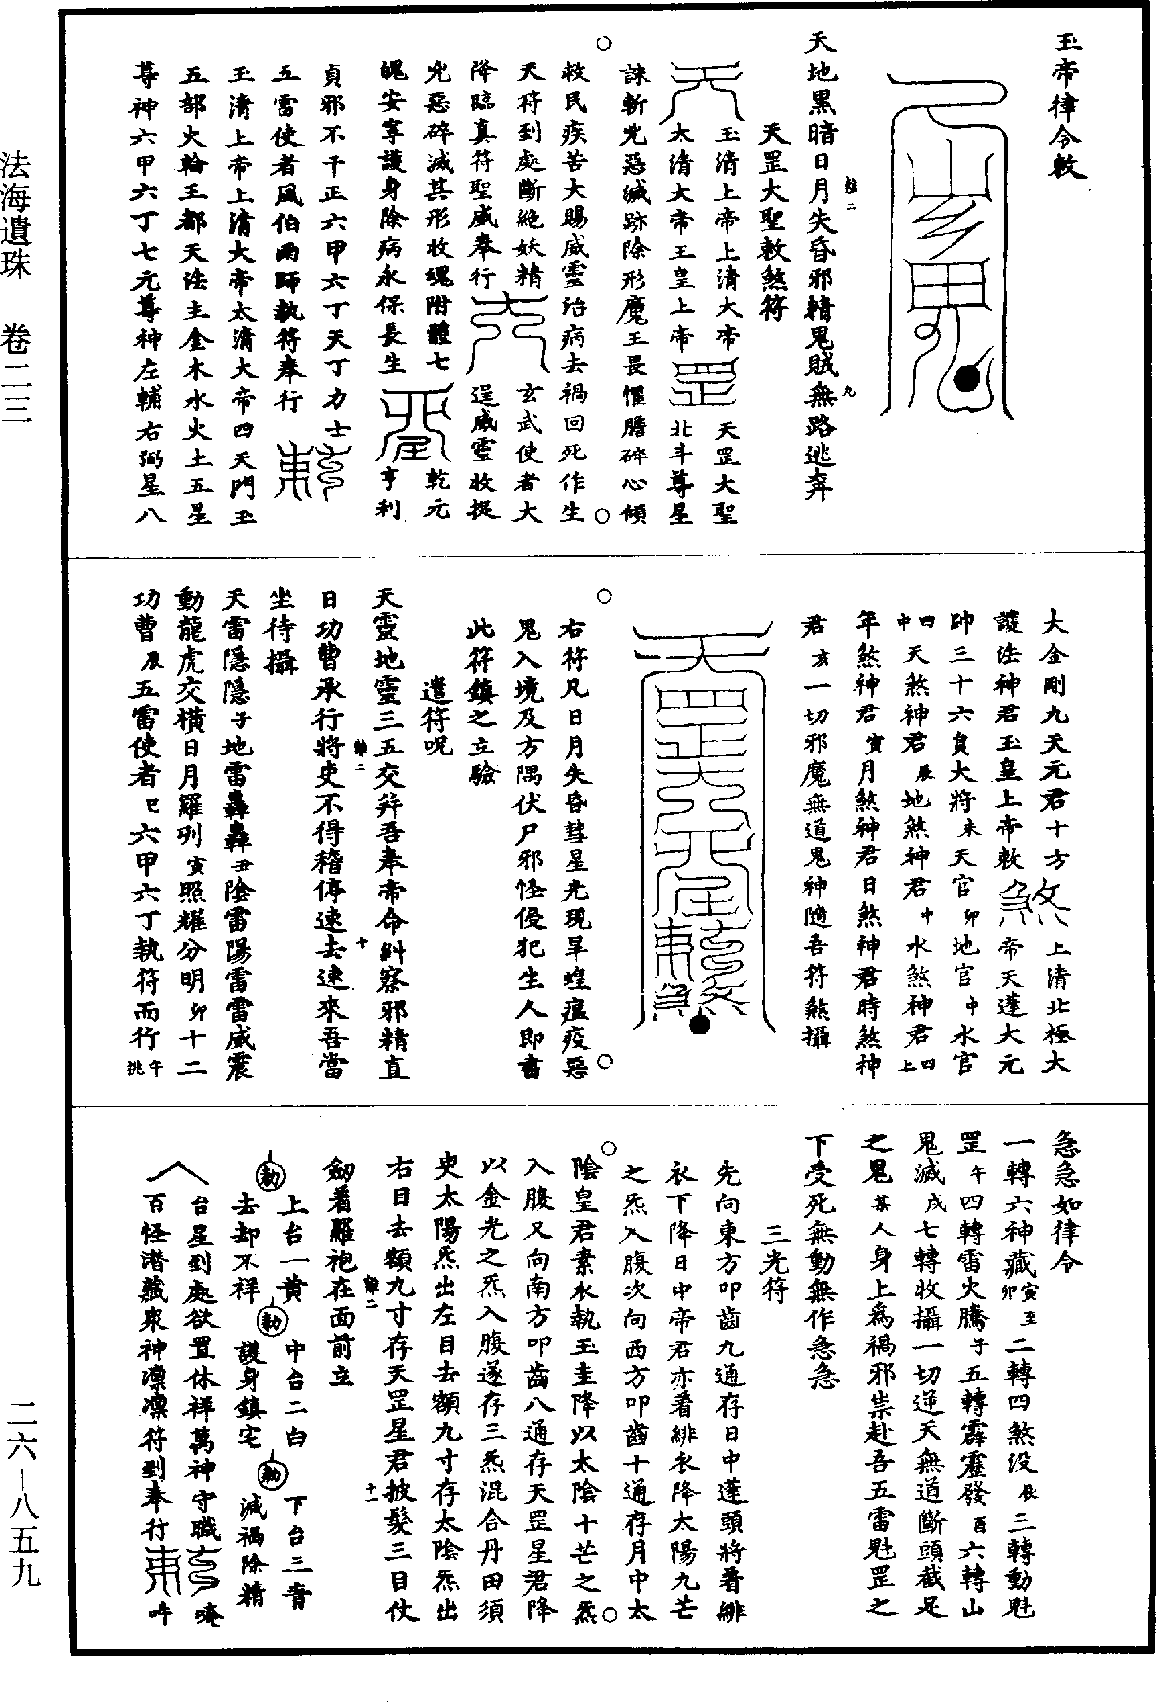 玉帝律令敕
天地黑暗日月失昏邪精鬼賊無路逃奔
天罡大聖敕煞符
玉清上帝上清大帝 天罡大聖
天 太清大帝玉皇上帝 罡 北斗尊星
誅斬兇惡滅跡除形魔王畏懼膽碎心傾
救民疾苦大賜威靈治病去禍回死作生
天符到處斷絕妖精 玄武使者大
降臨真符聖威奉行 逞威靈收捉
兇惡碎滅其形收魂附體七 乾元
魄安寧護身除病永保長生 亨利
貞邪不干正六甲六丁天丁力士
五雷使者風伯雨師執符奉行 敕
玉清上帝上清大帝太清大帝四天門王
五部火輪王都天法主金木水火土五星
尊神六甲六丁七元尊神左輔右弼星八
大金剛九天元君十方 煞 上清北極大
護法神君玉皇上帝敕 帝天蓬大元
帥三十六員大將未天官卯地官中水官
四中天煞神君辰地煞神君中水煞神君四上
年煞神君寅月煞神君日煞神君時煞神
君亥一切邪魔無道鬼神隨吾符煞攝
右符凡日月失昏彗星光現旱蝗瘟疫惡
鬼入境及方隅伏尸邪怪侵犯生人即書
此符鎮之立驗
遣符呪
天靈地靈三五交并吾奉帝命糾察邪精直
日功曹承行將吏不得稽停速去速來吾當
坐待攝
天雷隱隱子地雷轟轟丑陰雷陽雷雷威震
動龍虎交橫日月羅列寅照耀分明卯十二
功曹辰五雷使者巳六甲六丁執符而行午挑
急急如律令
一轉六神藏寅至卯二轉四煞没辰三轉動魁
罡午四轉雷火騰子五轉霹靂發酉六轉山
鬼滅戌七轉收攝一切逆天無道斷頭截足
之鬼某人身上為禍邪祟赴吾五雷魁罡之
下受死無動無作急急
三光符
先向東方叩齒九通存日中蓬頭將着緋
衣下降日中帝君亦着緋衣降太陽九芒
之炁入腹次向西方叩齒十通存月中太
陰皇君素衣執玉圭降以太陰十芒之炁
入腹又向南方叩齒八通存天罡星君降
以金光之炁入腹遂存三炁混合丹田須
臾太陽炁出左目去額九寸存太陰炁出
右目去額九寸存天罡星君披髮三目仗
劒着羅袍在面前立
勑 上台一黄 勑 中台二白 勑 下台三青
去却不祥 護身鎮宅 滅禍除精
台星到處欲置休祥萬神守職 唵
百怪潜藏衆神凛凛符到奉行 敕 吽
法海遺珠 卷二三
二六—八五九